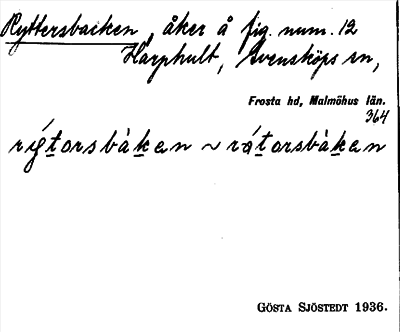 Ryttersbacken, åker å fig. num. 12
Harphult, Svensköps sn,
Frosta hd, Malmöhus län.
364
rýtorsbàken ~ rǿtorsbàken
GÖSTA SJÖSTEDT 1936.